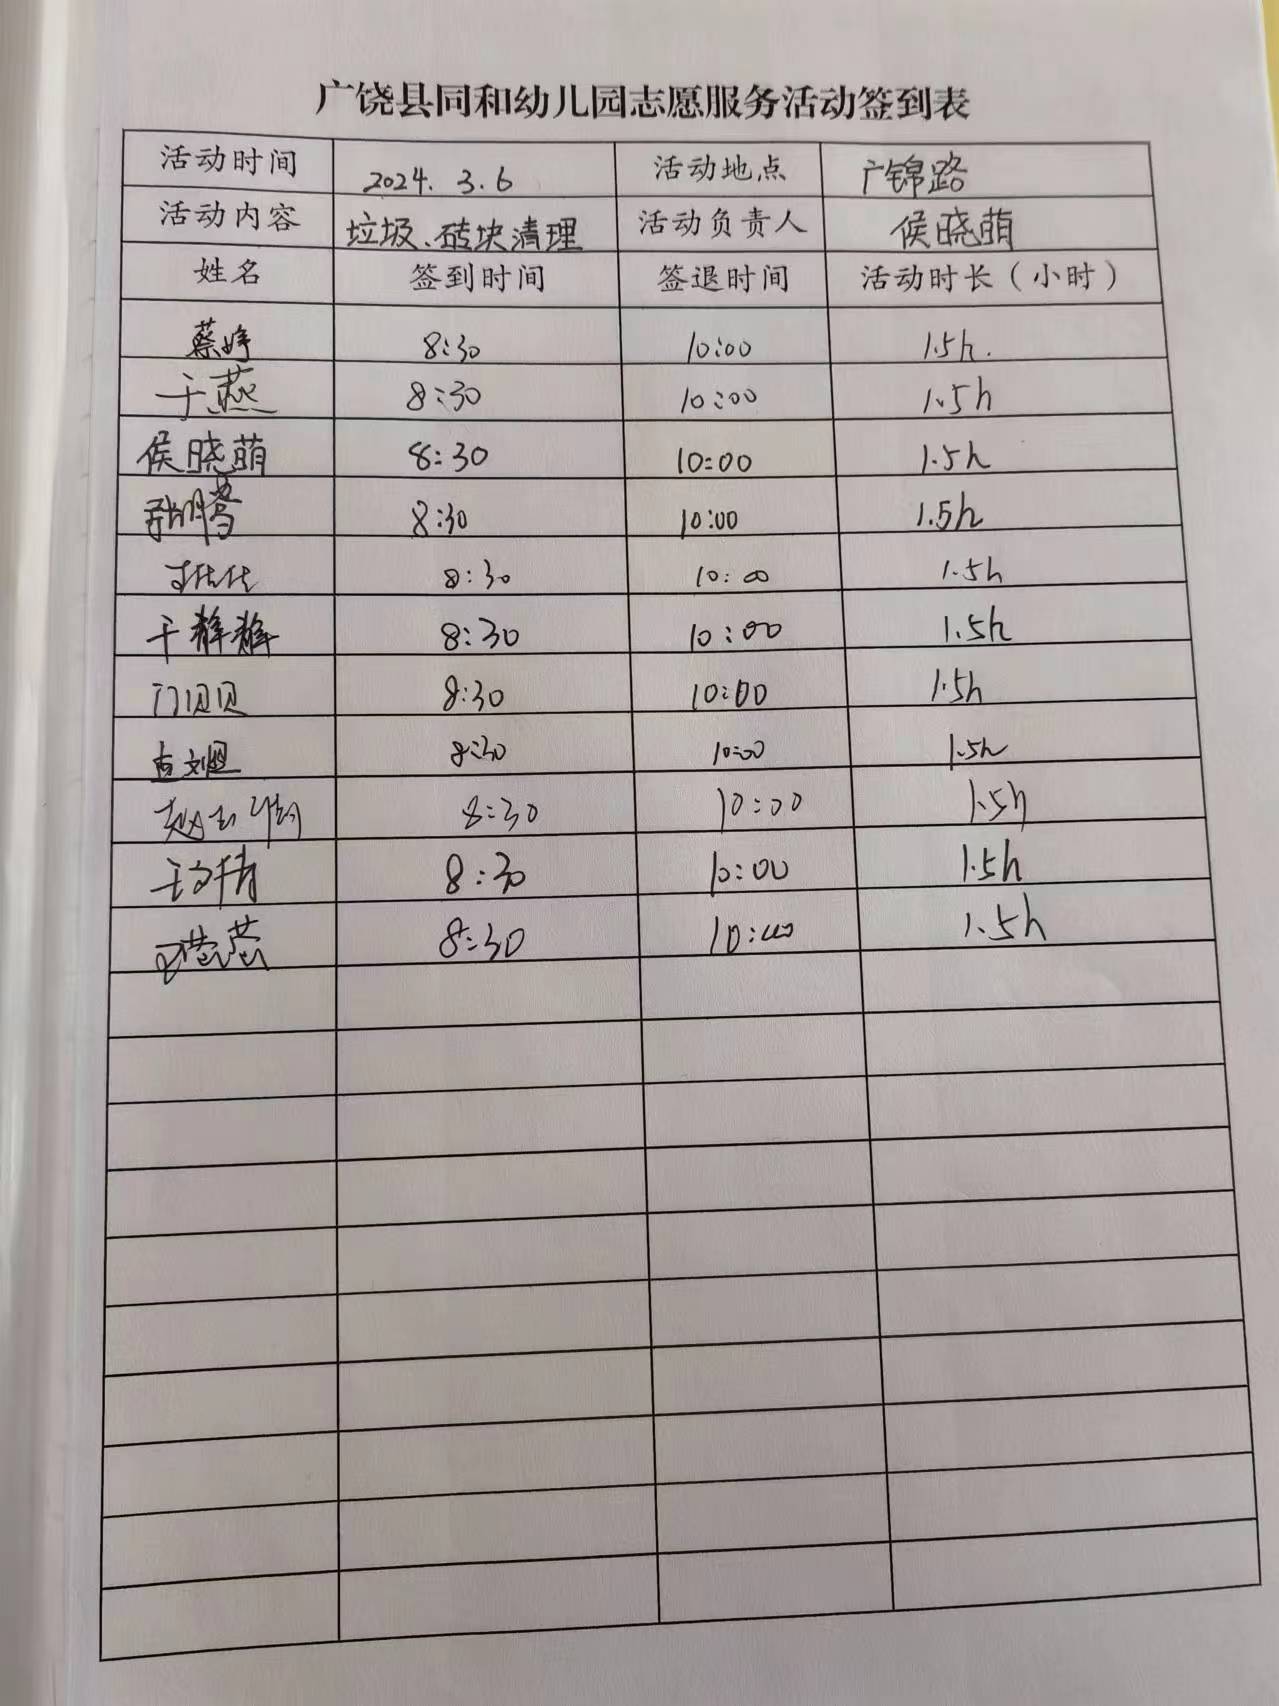 广饶县同和幼儿园志愿服务活动签到表
活动时间 2024. 3.6 活动地点 广锦路
活动内容 垃圾、砖块清理 活动负责人 侯晓萌
姓名 签到时间 签退时间 活动时长（小时）
蔡婷 8:30 10:00 1.5h.
于燕 8:30 10:00 1.5h
侯晓萌 8:30 10:00 1.5h
8:30 10:00 1.5h
8:30 10:00 1.5h
8:30 10:00 1.5h
门贝贝 8:30 10:00 1.5h
8:30 10:00 1.5h
8:30 10:00 1.5h
8:30 10:00 1.5h
8:30 10:00 1.5h